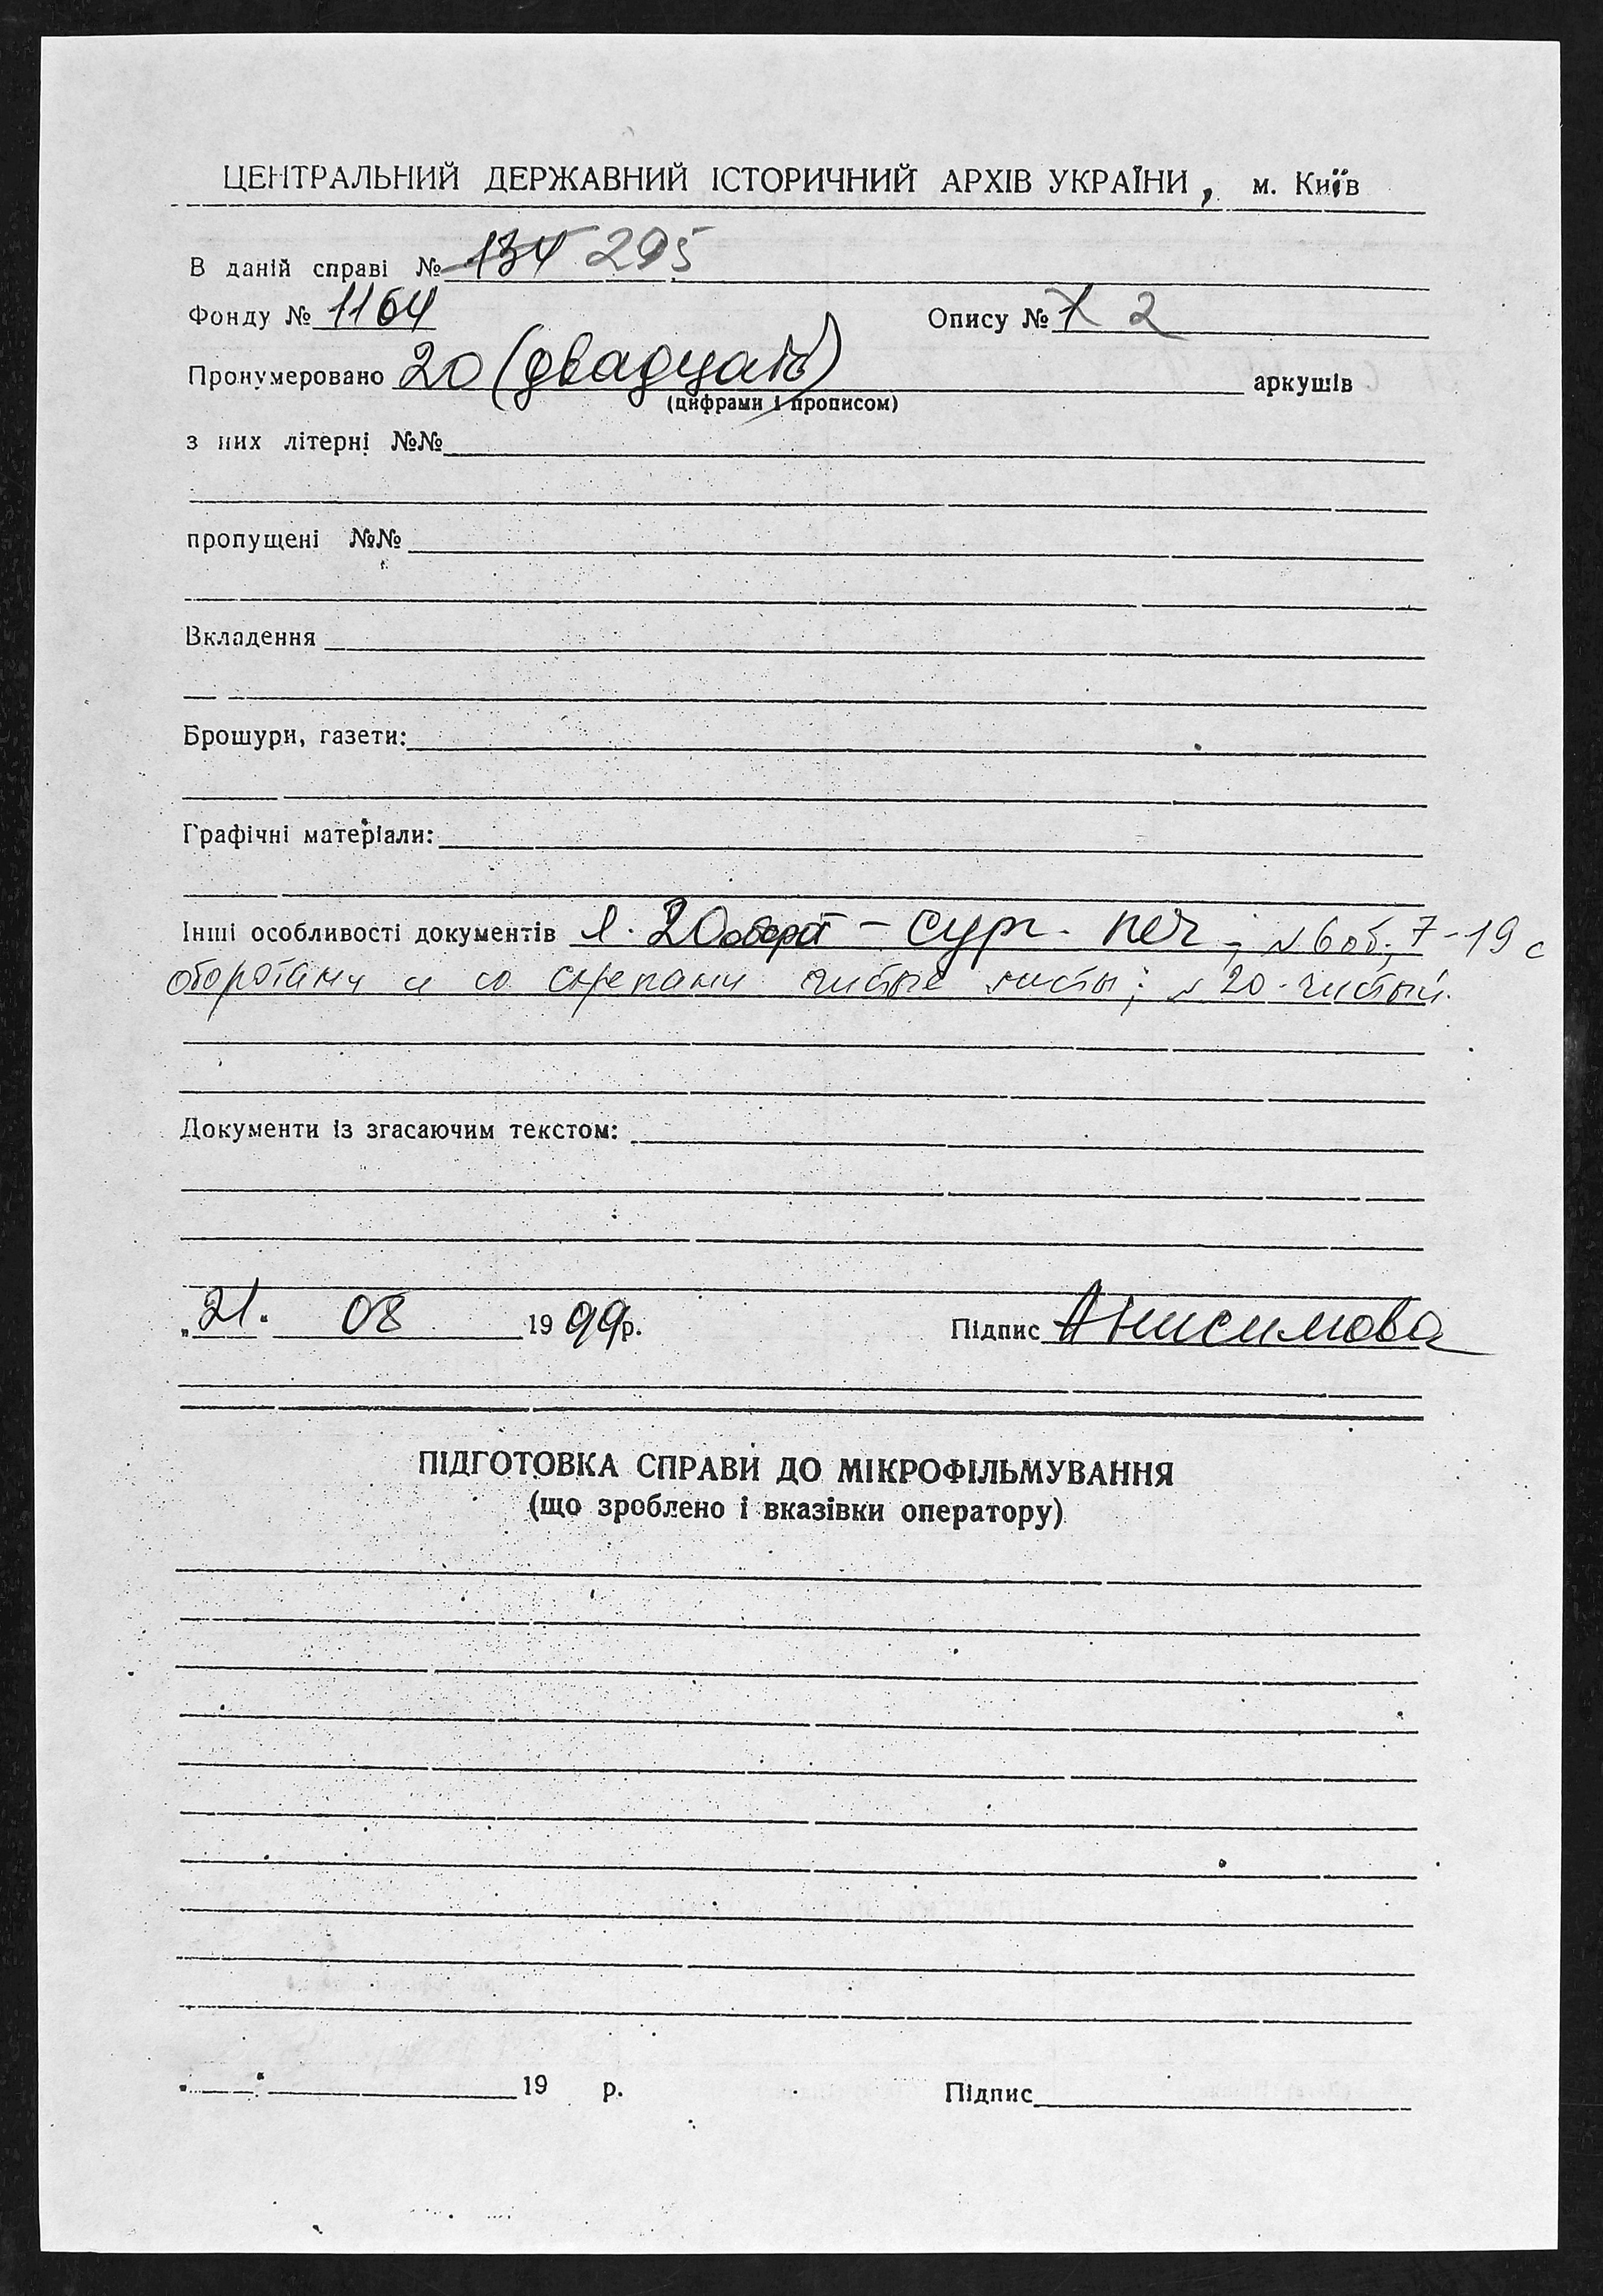 ЦЕНТРАЛЬНИЙ ДЕРЖАВНИЙ ІСТОРИЧНИЙ АРХІВ УКРАЇНИ, м. Київ
В даній справі № 134 295
Фонду № 1164 Опису № 1 2
Пронумеровано 20 (двадцать) аркушів
(цифрами і прописом)
з них літерні №№
пропущені №№
Вкладення
Брошури, газети:
Графічні матеріали:
Інші особливості документів л. 20 оборот – сург. печ.; л 6 об., 7-19 с
оборотами и со скрепами чистые листы; л 20 - чистый.
Документи із згасаючим текстом:
„21. 08 1999р. Підпис Анисимова
ПІДГОТОВКА СПРАВИ ДО МІКРОФІЛЬМУВАННЯ
(що зроблено і вказівки оператору)
19 р. Підпис